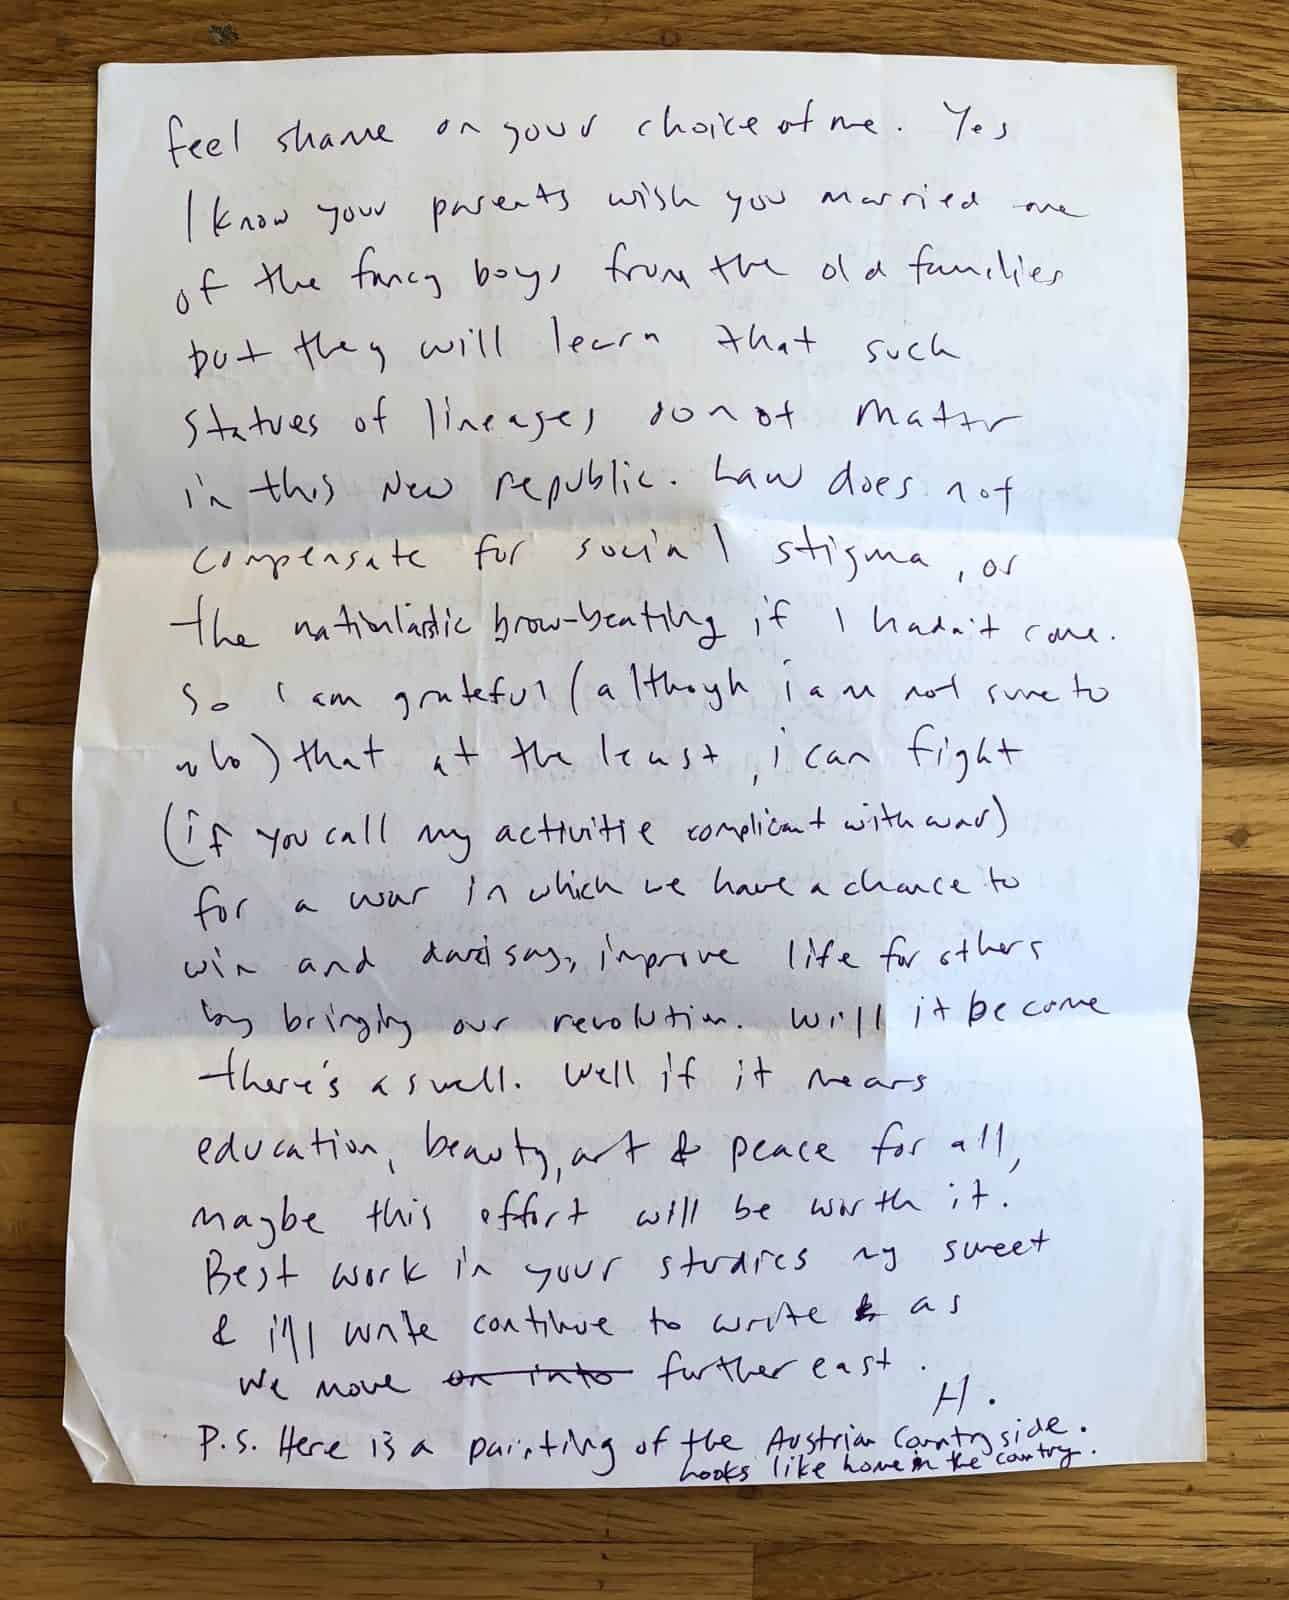 feel shame on your choice of me. Yes
I know your parents wish you married one
of the fancy boys from the old families
but they will learn that such
statues of lineages do not matter
in this New republic. Law does not
compensate for social stigma, or
the brow-beating if I hadn't come.
So I am grateful (although i am not sure to
who) that at the least, i can fight
(if you call my activitie complicant with war)
for a war in which we have a chance to
win and say, improve life for others
by bringing our revolution. Will it become
there's as well. Well if it means
education, beauty, art & peace for all,
maybe this effort will be worth it.
Best work in your studies my sweet
& i'll write continue to write as
we move on into further east.
H.
P.S. Here is a painting of the Austrian Countryside.
Looks like home in the country.